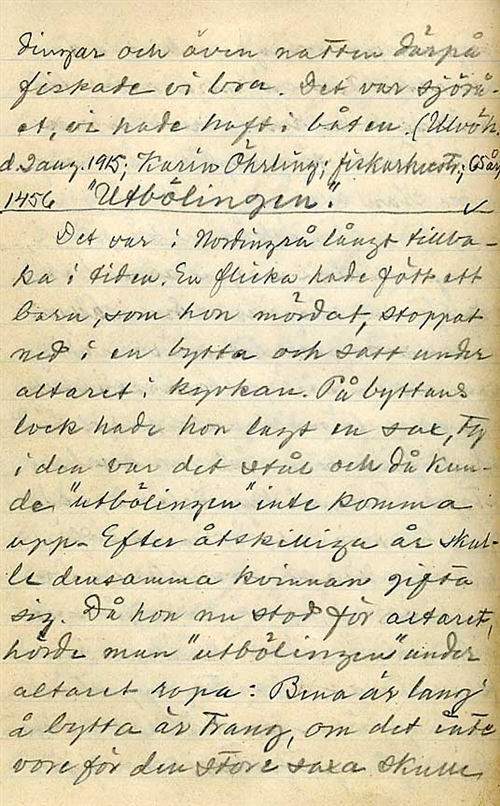 dingar och även natten därpå
fiskade vi bra. Det var sjörå-
et, vi hade haft i båten. (Ulvöh
d. 2 aug. 1915; Karin Öhrling; fiskarhustr; 65 år)
1456 "Utbölingen".
Det var i Nordingrå långt tillba-
ka i tiden. En flicka hade fött ett
barn, som hon mördat, stoppat
ned i en bytta och satt under
altaret i kyrkan. På byttans
lock hade hon lagt en sax, ty
i den var det stål och då kun-
de "utbölingen" inte komma
upp. Efter åtskilliga år skul-
le densamma kvinnan gifta
sig. Då hon nu stod för altaret,
hörde man "utbölingen" under
altaret ropa: Bena är lang
å bytta är trang, om det inte
vore för den store saxa skulle